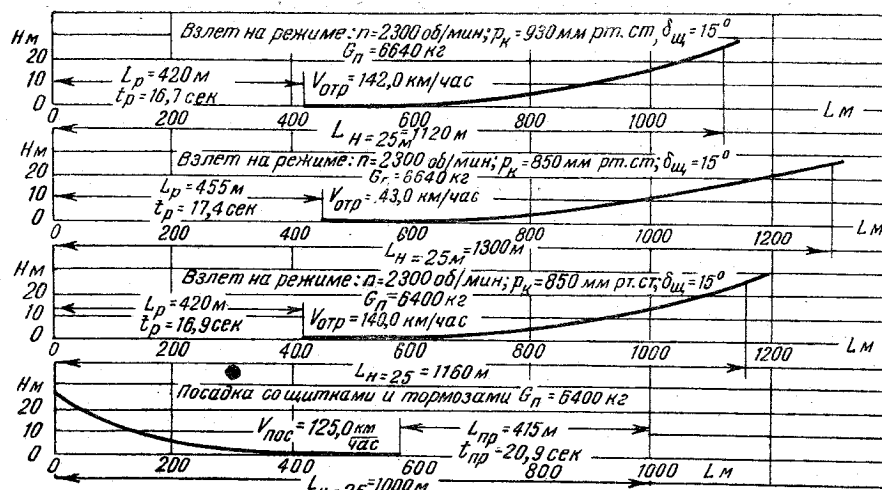 Hм
Взлет на режиме: n=2300 об/мин; pк = 930 мм рт. ст, δщ=15°
Gп = 6640 кг
20
10
0
Lр=420 м
tр=16,7 сек
Vотр=142,0 км/час
400
600
800
1000
L м
LH=25м=1120 м
Hм
Взлет на режиме: n=2300 об/мин; pк = 850 мм рт. ст, δщ=15°
6640 кг
20
10
0
Lр=455 м
tр=17,4 сек
Vотр= 43,0 км/час
400
600
800
1000
1200
L м
LH=25м=1300 м
Hм
Взлет на режиме: n=2300 об/мин; pк=850 мм рт. ст, δщ=15°
Gп=6400 кг
20
10
0
Lр=420 м
tр=16,9 сек
Vотр=140,0 км/час
200
400
600
800
1000
1200
L м
LH=25=1160 м
Hм
Посадка со щитками и тормозами Gп = 6400 кг
20
10
0
Vпос=125,0 км/час
Lпр=415 м
tпр=20,9 сек
0
200
400
600
800
1000
L м
=1000 м